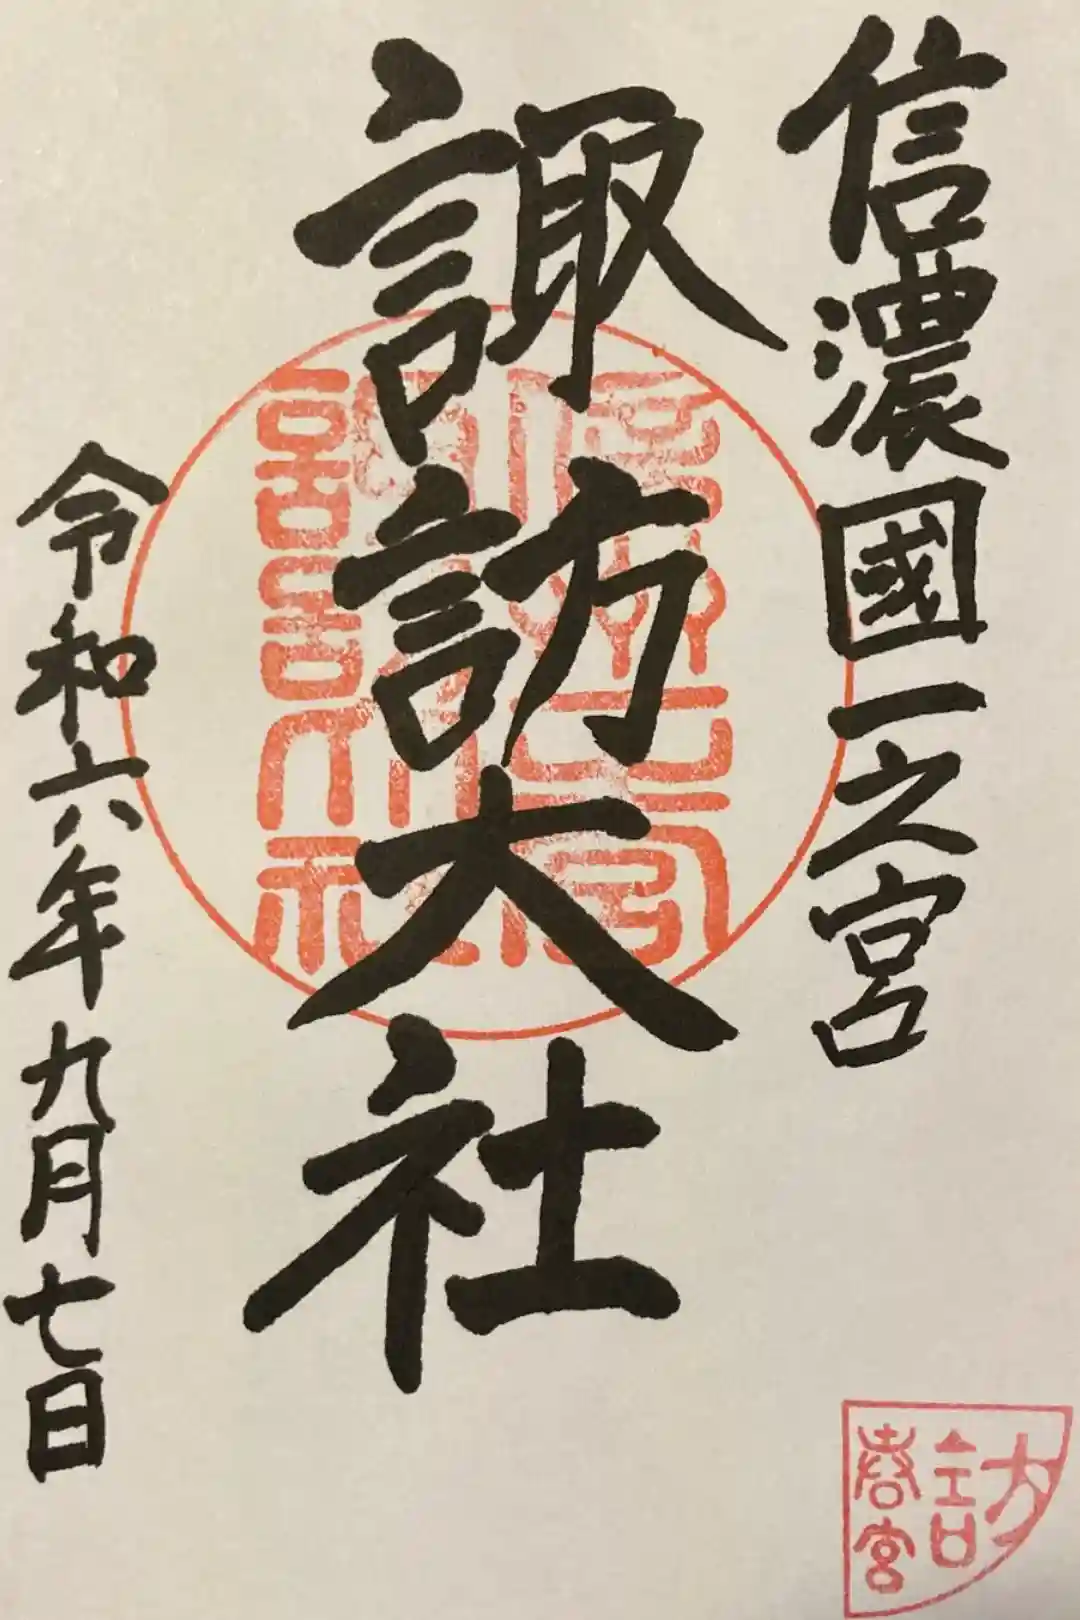 信濃國一之宮
諏訪大社
令和六年九月七日
訪
春宮